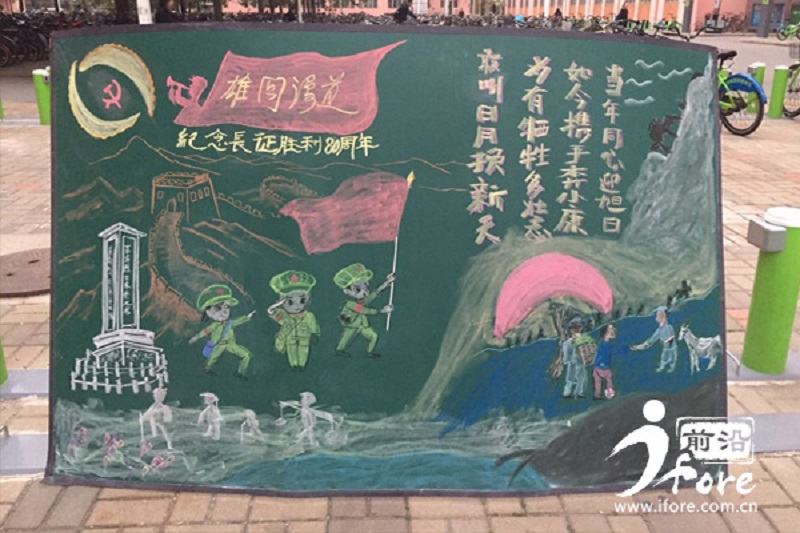 雄関漫道
紀念長征胜利80周年
当年同心迎旭日
如今携手奔小康
为有牺牲多壮志
敢叫日月换新天
前沿
ifore
www.ifore.com.cn